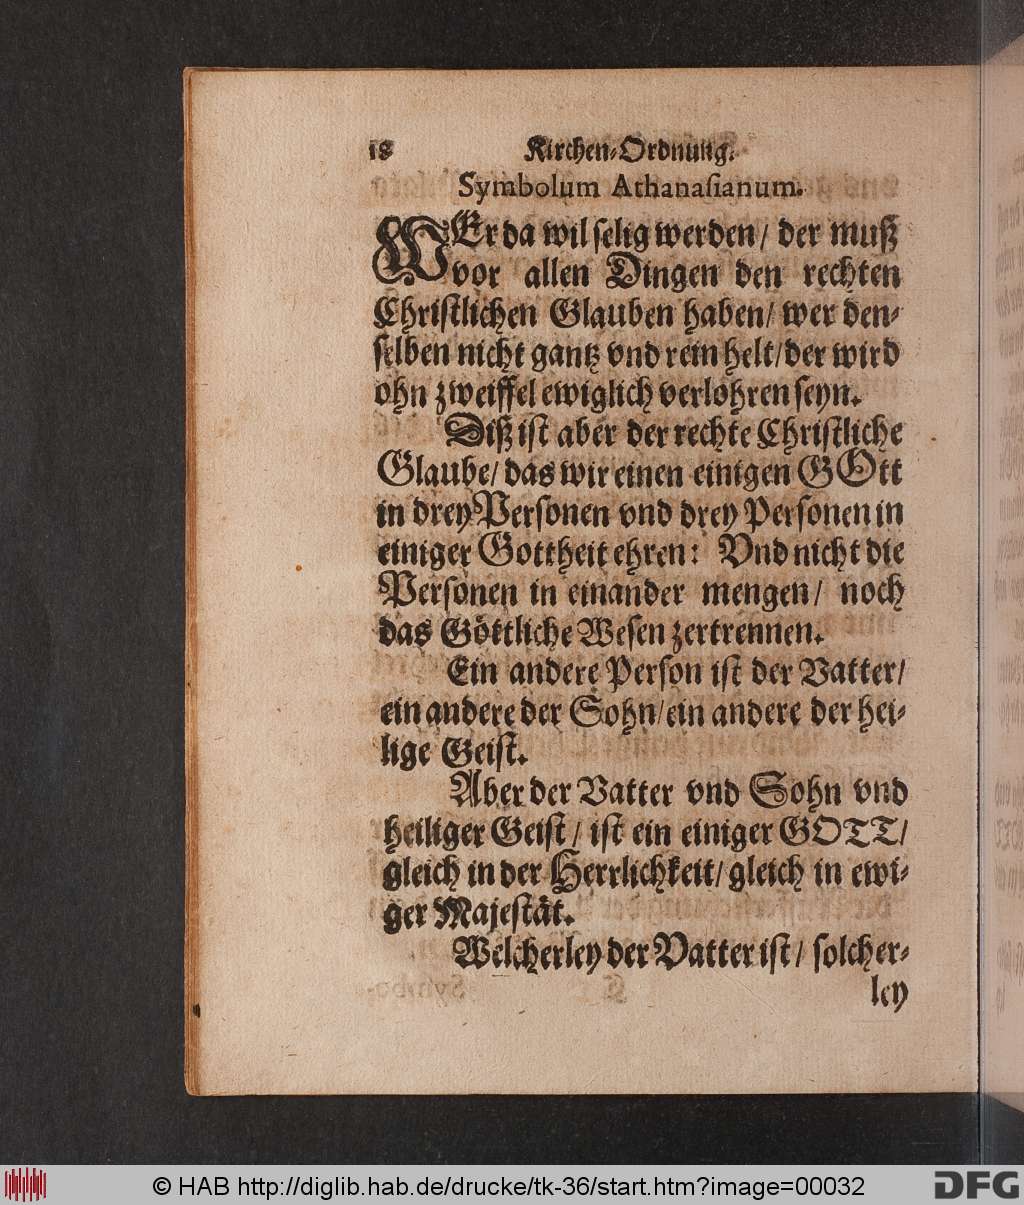 18 Kirchen-Ordnung.
Symbolum Athanaſianum.
WEr da wil ſelig werden/ der muß
vor allen Dingen den rechten
Chriſtlichen Glauben haben/ wer den-
ſelben nicht gantz vnd rein helt/ der wird
ohn zweiffel ewiglich verlohren ſeyn.
Diß iſt aber der rechte Chriſtliche
Glaube/ das wir einen einigen GOtt
in drey Perſonen vnd drey Perſonen in
einiger Gottheit ehren: Vnd nicht die
Perſonen in einander mengen/ noch
das Göttliche Weſen zertrennen.
Ein andere Perſon iſt der Vatter/
ein andere der Sohn/ ein andere der hei-
lige Geiſt.
Aber der Vatter vnd Sohn vnd
heiliger Geiſt/ iſt ein einiger GOTT/
gleich in der Herrlichkeit/ gleich in ewi-
ger Majeſtät.
Welcherley der Vatter iſt/ ſolcher-
ley
© HAB http://diglib.hab.de/drucke/tk-36/start.htm?image=00032
DFG